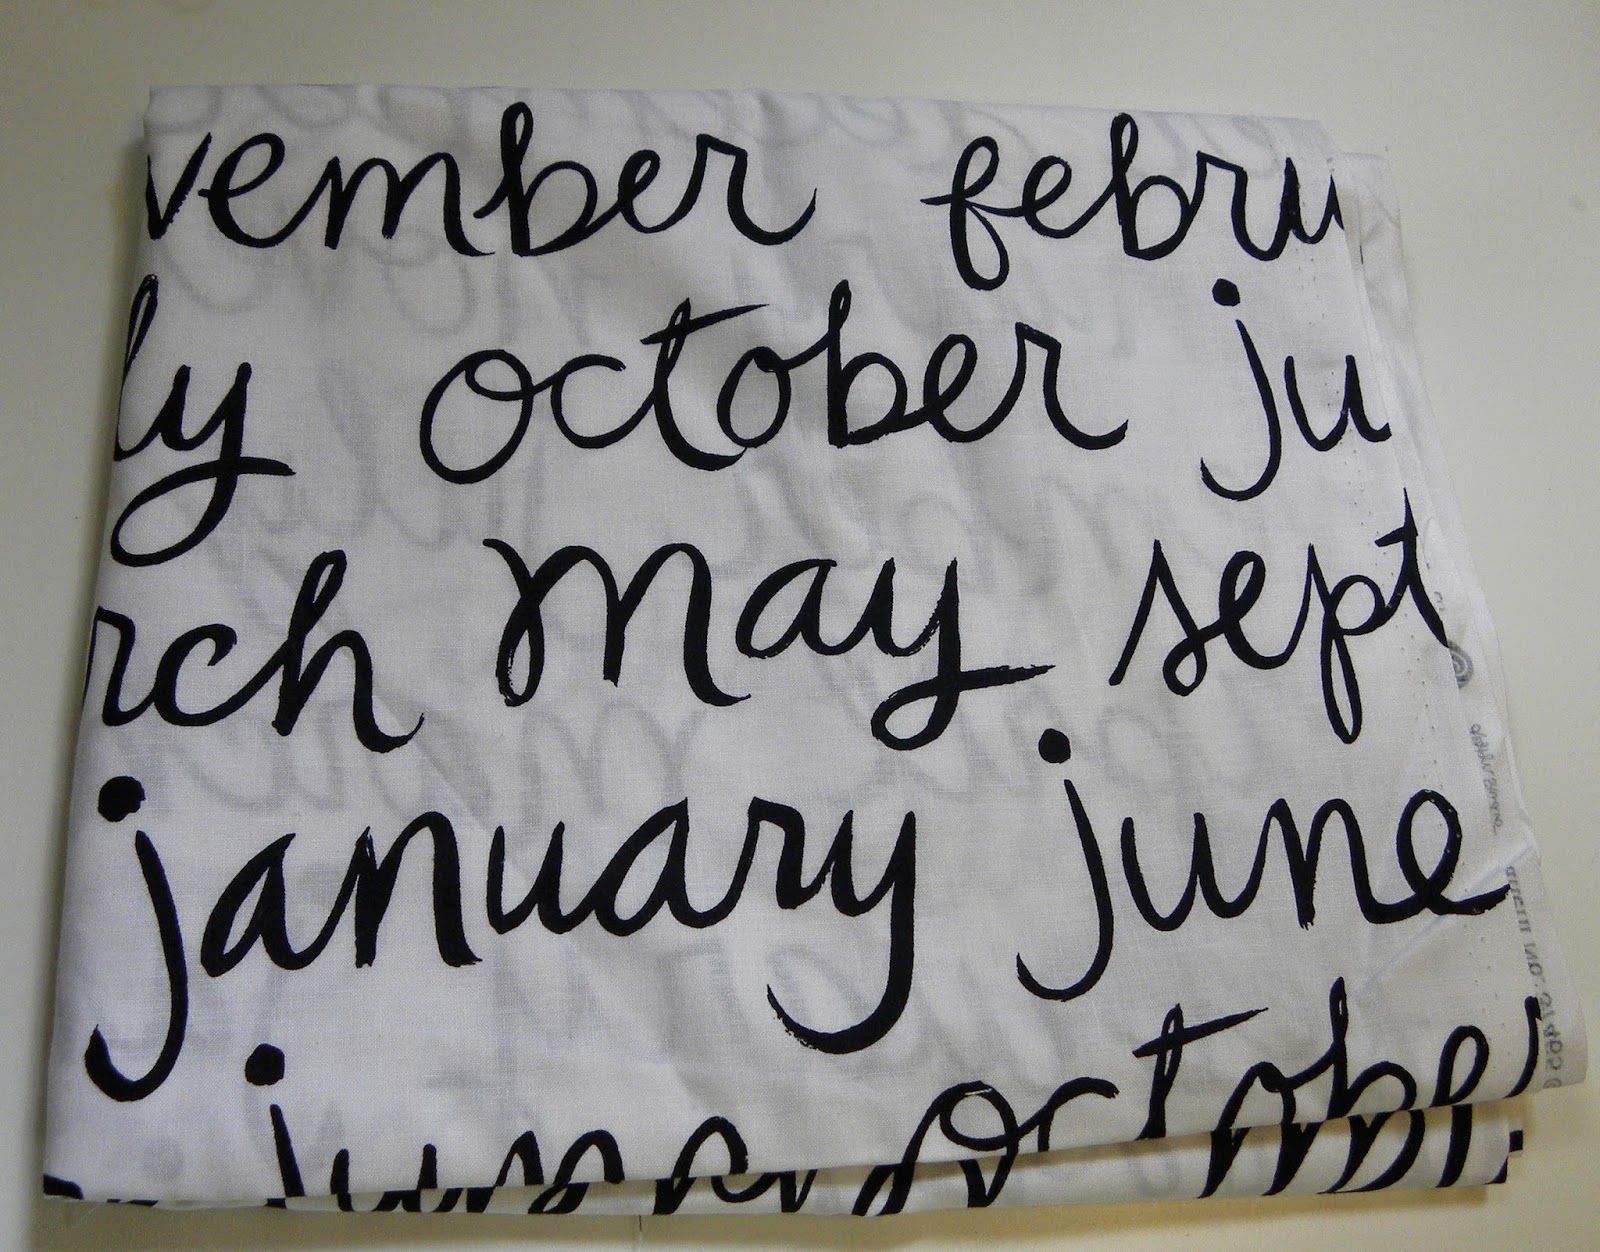 vember febru
ly october ju
rch may sept
january june
june october